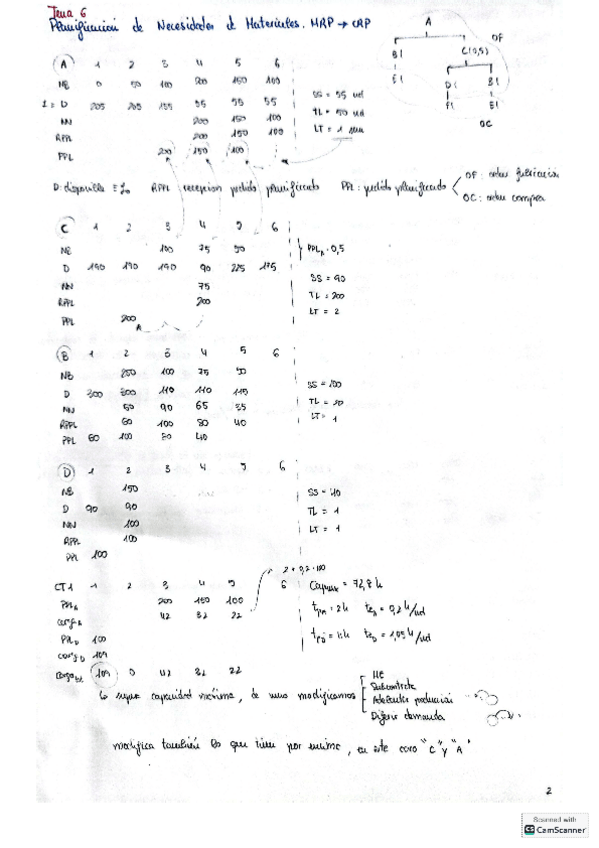 Tema 6
Planificación de Necesidades de Materiales. MRP → CRP
A
B1 C(0,5) OF
E1 D1 B1
F1 E1
OC
A 1 2 3 4 5 6
NB 0 50 100 200 150 100
D 205 205 155 55 55 55
NN 200 150 100
RPPL 200 150 100
PPL 200 150 100
SS = 55 ud
TL = 50 ud
LT = 1 sem
D: disponible RPPL recepcion pedido planificado PPL: pedido planificado
OF: orden fabricacion
OC: orden compra
C 1 2 3 4 5 6
NB 100 75 50
D 190 190 190 90 225 175
NN 75
RPPL 200
PPL 200
A
PPL A · 0,5
SS = 90
TL = 200
LT = 2
B 1 2 3 4 5 6
NB 250 100 75 50
D 300 300 110 110 115
NN 60 90 65 35
RPPL 60 100 80 40
PPL 60 100 80 40
SS = 100
LT = 1
D 1 2 3 4 5 6
NB 150
D 90 90
NN 100
RPPL 100
PPL 100
SS = 40
TL = 1
LT = 1
2 + 0,2 · 100
CT1 1 2 3 4 5 6
PPL A 200 150 100
carga A 42 32 22
PPL D 100
carga D 109
carga 109 0 42 32 22
Cap max = 72,8 h
HE
Subcontrata
Adelantar produccion
Diferir demanda
supera capacidad máxima, de modo modificamos
modifica también los que tiene por encima, en este caso "C" y "A"
2
Scanned with
CS CamScanner